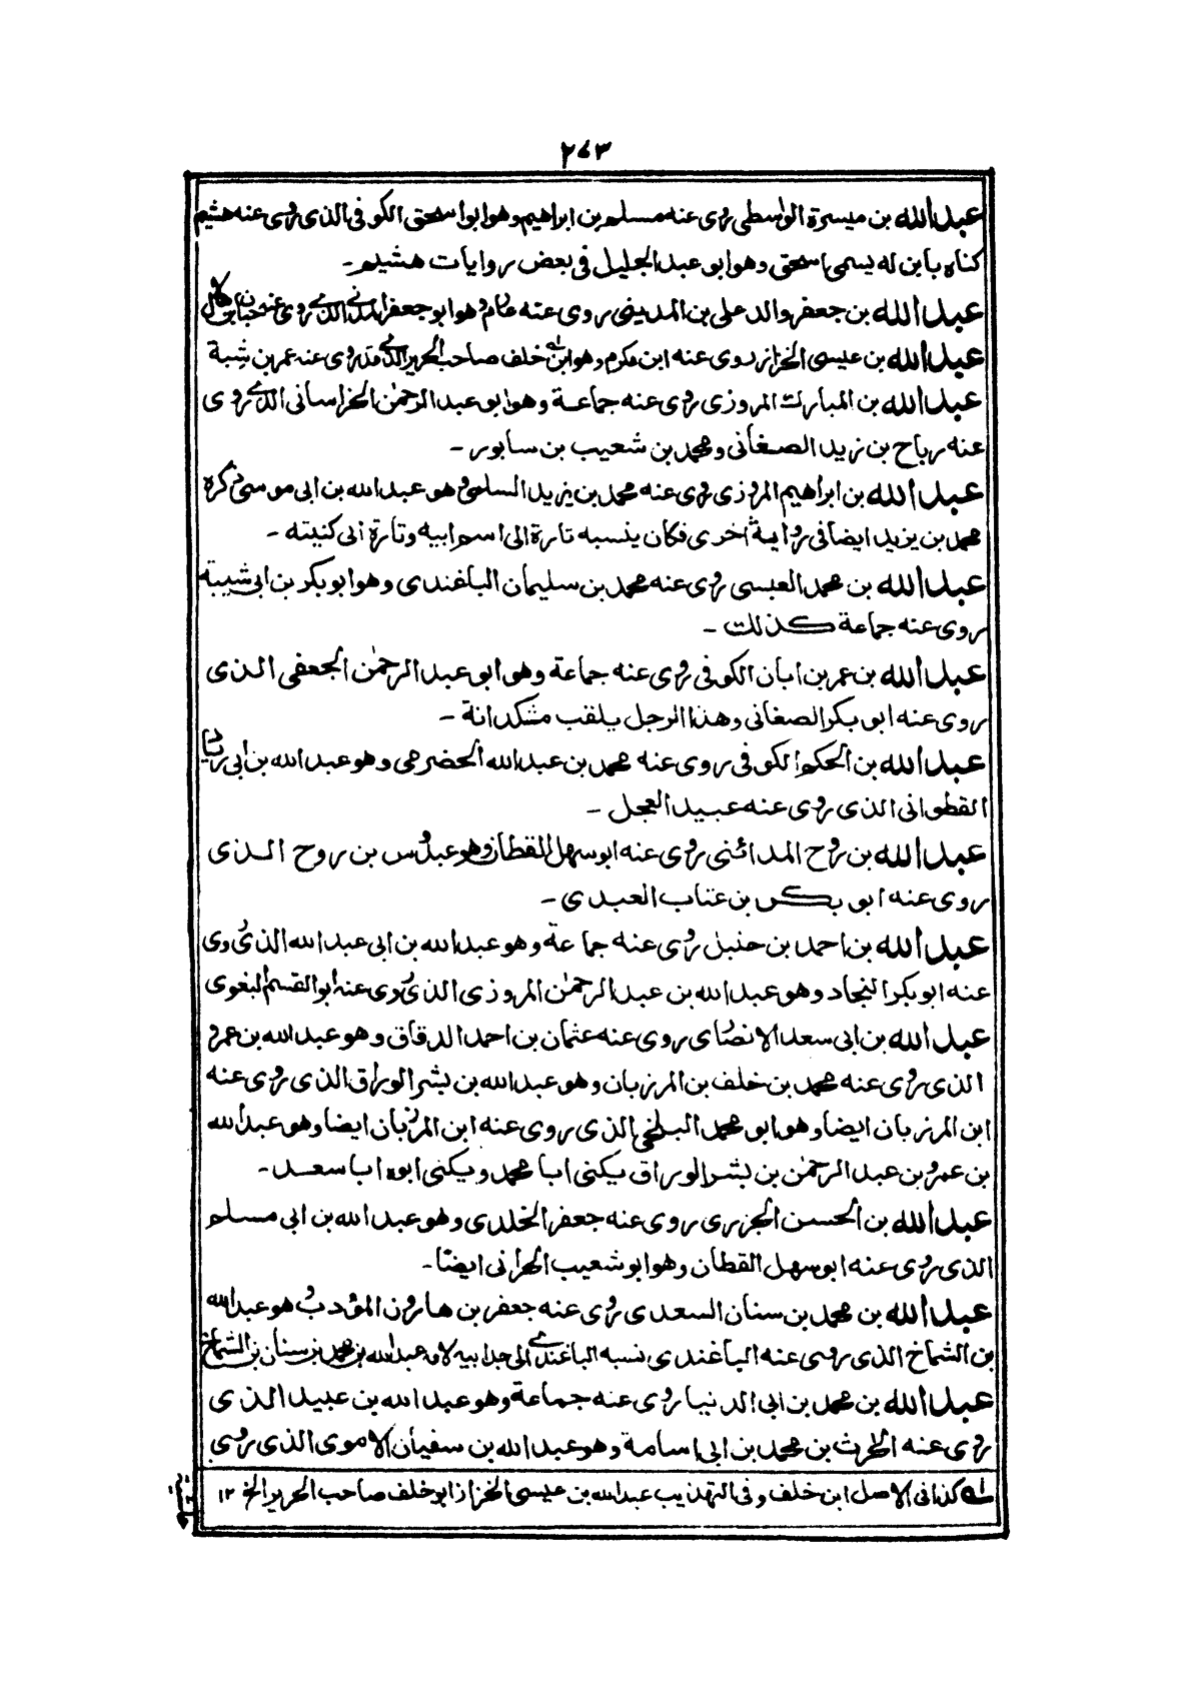 ٢٧٣
عبد الله بن ميسرة الواسطى روى عنه مسلم بن ابراهيم وهو ابو اسحق الكوفى الذى روى عنه هشيم
كناه بابن له يسمى اسحق وهو ابو عبد الجليل فى بعض روايات هشيم ۔
عبد الله بن جعفر والد على بن المدينى روى عنه وهو ابو جعفر المدنى الذى روى عنه
عبد الله بن عيسى الخزاز روى عنه ابن مكرم وهو ابن خلف صاحب الحرير الذى قد روى عنه عمر بن شبة
عبد الله بن المبارك المروزى روى عنه جماعة وهو ابو عبد الرحمٰن الخراسانى الذى روى
عنه رباح بن زيد الصغانى ومحمد بن شعيب بن سابور ۔
عبد الله بن ابراهيم المروزى روى عنه محمد بن يزيد السلمى وهو عبد الله بن ابى موسى ذكره
محمد بن يزيد ايضا فى رواية اخرى فكان ينسبه تارة الى اسم ابيه وتارة الى كنيته ۔
عبد الله بن محمد العبسى روى عنه محمد بن سليمان الباغندى وهو ابو بكر بن ابى شيبة
روى عنه جماعة كذلك ۔
عبد الله بن عمر بن ابان الكوفى روى عنه جماعة وهو ابو عبد الرحمٰن الجعفى الذى
روى عنه ابو بكر الصغانى وهذا الرجل يلقب مشكدانة ۔
عبد الله بن الحكم الكوفى روى عنه محمد بن عبد الله الحضرمى وهو عبد الله بن ابى زياد
القطوانى الذى روى عنه عبيد العجل ۔
عبد الله بن روح المدائنى روى عنه ابو سهل القطان وهو عبدوس بن روح الذى
روى عنه ابو بكر بن عتاب العبدى ۔
عبد الله بن احمد بن حنبل روى عنه جماعة وهو عبد الله بن ابى عبد الله الذى روى
عنه ابو بكر النجاد وهو عبد الله بن عبد الرحمٰن المروزى الذى روى عنه ابو القسم البغوى
عبد الله بن ابى سعد الانصارى روى عنه عثمان بن احمد الدقاق وهو عبد الله بن عمرو
الذى روى عنه محمد بن خلف بن المرزبان وهو عبد الله بن بشر الوراق الذى روى عنه
ابن المرزبان ايضا وهو ابو محمد البلخى الذى روى عنه ابن المرزبان ايضا وهو عبد الله
بن عمرو بن عبد الرحمٰن بن بشر الوراق يكنى ابا محمد ويكنى ابوه ابا سعد ۔
عبد الله بن الحسن الجزرى روى عنه جعفر الخلدى وهو عبد الله بن ابى مسلم
الذى روى عنه ابو سهل القطان وهو ابو شعيب الحرانى ايضا ۔
عبد الله بن محمد بن سنان السعدى روى عنه جعفر بن هارون المؤدب وهو عبد الله
بن الشماخ الذى روى عنه الباغندى نسبه الباغندى الى جد ابيه لانه عبد الله بن محمد بن سنان بن الشماخ
عبد الله بن محمد بن ابى الدنيا روى عنه جماعة وهو عبد الله بن عبيد الذى
روى عنه الحرث بن محمد بن ابى اسامة وهو عبد الله بن سفيان الاموى الذى روى
كذا فى الاصل ابن خلف وفى التهذيب عبد الله بن عيسى الخزاز ابو خلف صاحب الحرير الخ ١٢